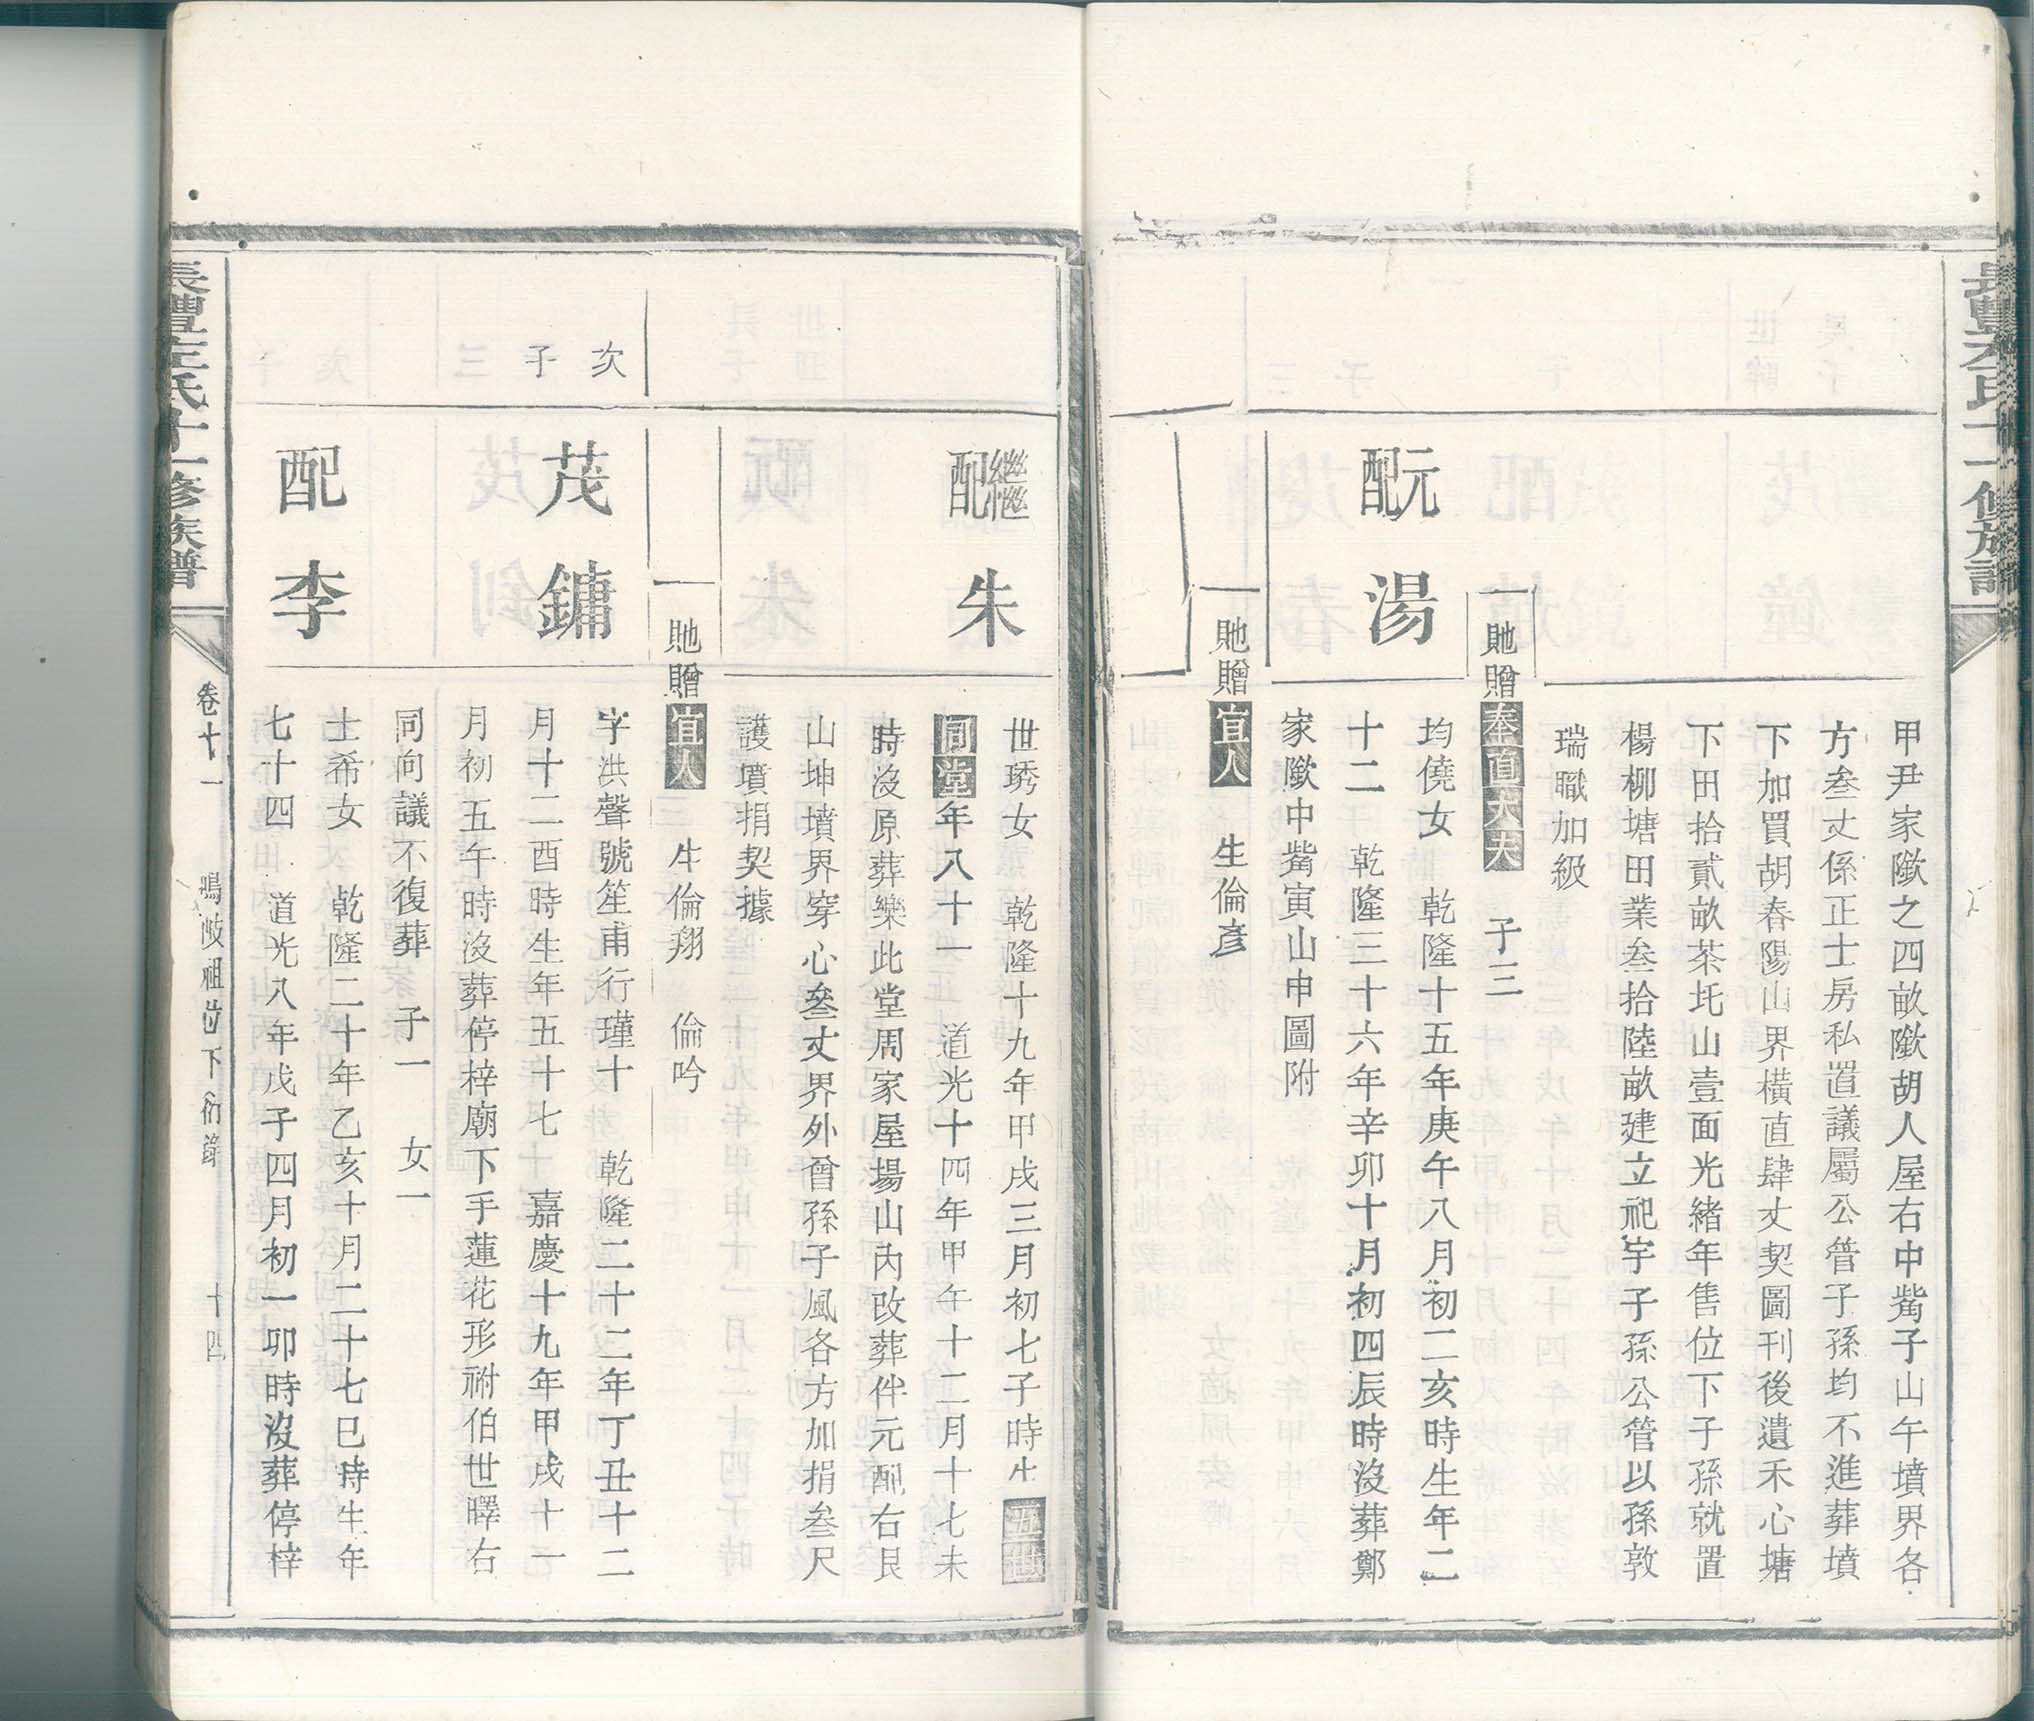 甲尹家隞之四畝隞胡人屋右中觜子山午墳界各
方叁丈係正士房私置議屬公管子孫均不進葬墳
下加買胡春陽山界橫直肆丈契圖刊後遺禾心塘
下田拾貳畝茶圫山壹面光緒年售位下子孫就置
楊柳塘田業叁拾陸畝建立祀宇子孫公管以孫敦
瑞職加級
貤贈奉直大夫 子三
元配 湯
均僥女 乾隆十五年庚午八月初二亥時生年二
十二 乾隆三十六年辛卯十月初四辰時沒葬鄭
家隞中觜寅山申圖附
貤贈宜人 生倫彥
繼配 朱
世琇女 乾隆十九年甲戌三月初七子時生五世
同堂年八十一 道光十四年甲午十二月十七未
時沒原葬樂此堂周家屋場山內改葬伴元配右艮
山坤墳界穿心叁丈界外曾孫子風各方加捐叁尺
護墳捐契據
貤贈宜人 生倫翔 倫吟
次子三
茂鏞
字洪聲號笙甫行瑾十 乾隆二十二年丁丑十二
月十二酉時生年五十七 嘉慶十九年甲戌十一
月初五午時沒葬停梓廟下手蓮花形祔伯世曎右
同向議不復葬 子一 女一
配 李
士希女 乾隆二十年乙亥十月二十七巳時生年
七十四 道光八年戊子四月初一卯時沒葬停梓
長豐左氏十一修族譜
卷十一 鳴岐祖位下衍錄 十四